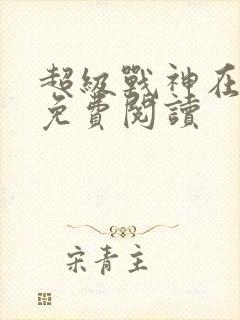 超級戰神在
免費閱讀
宋青主